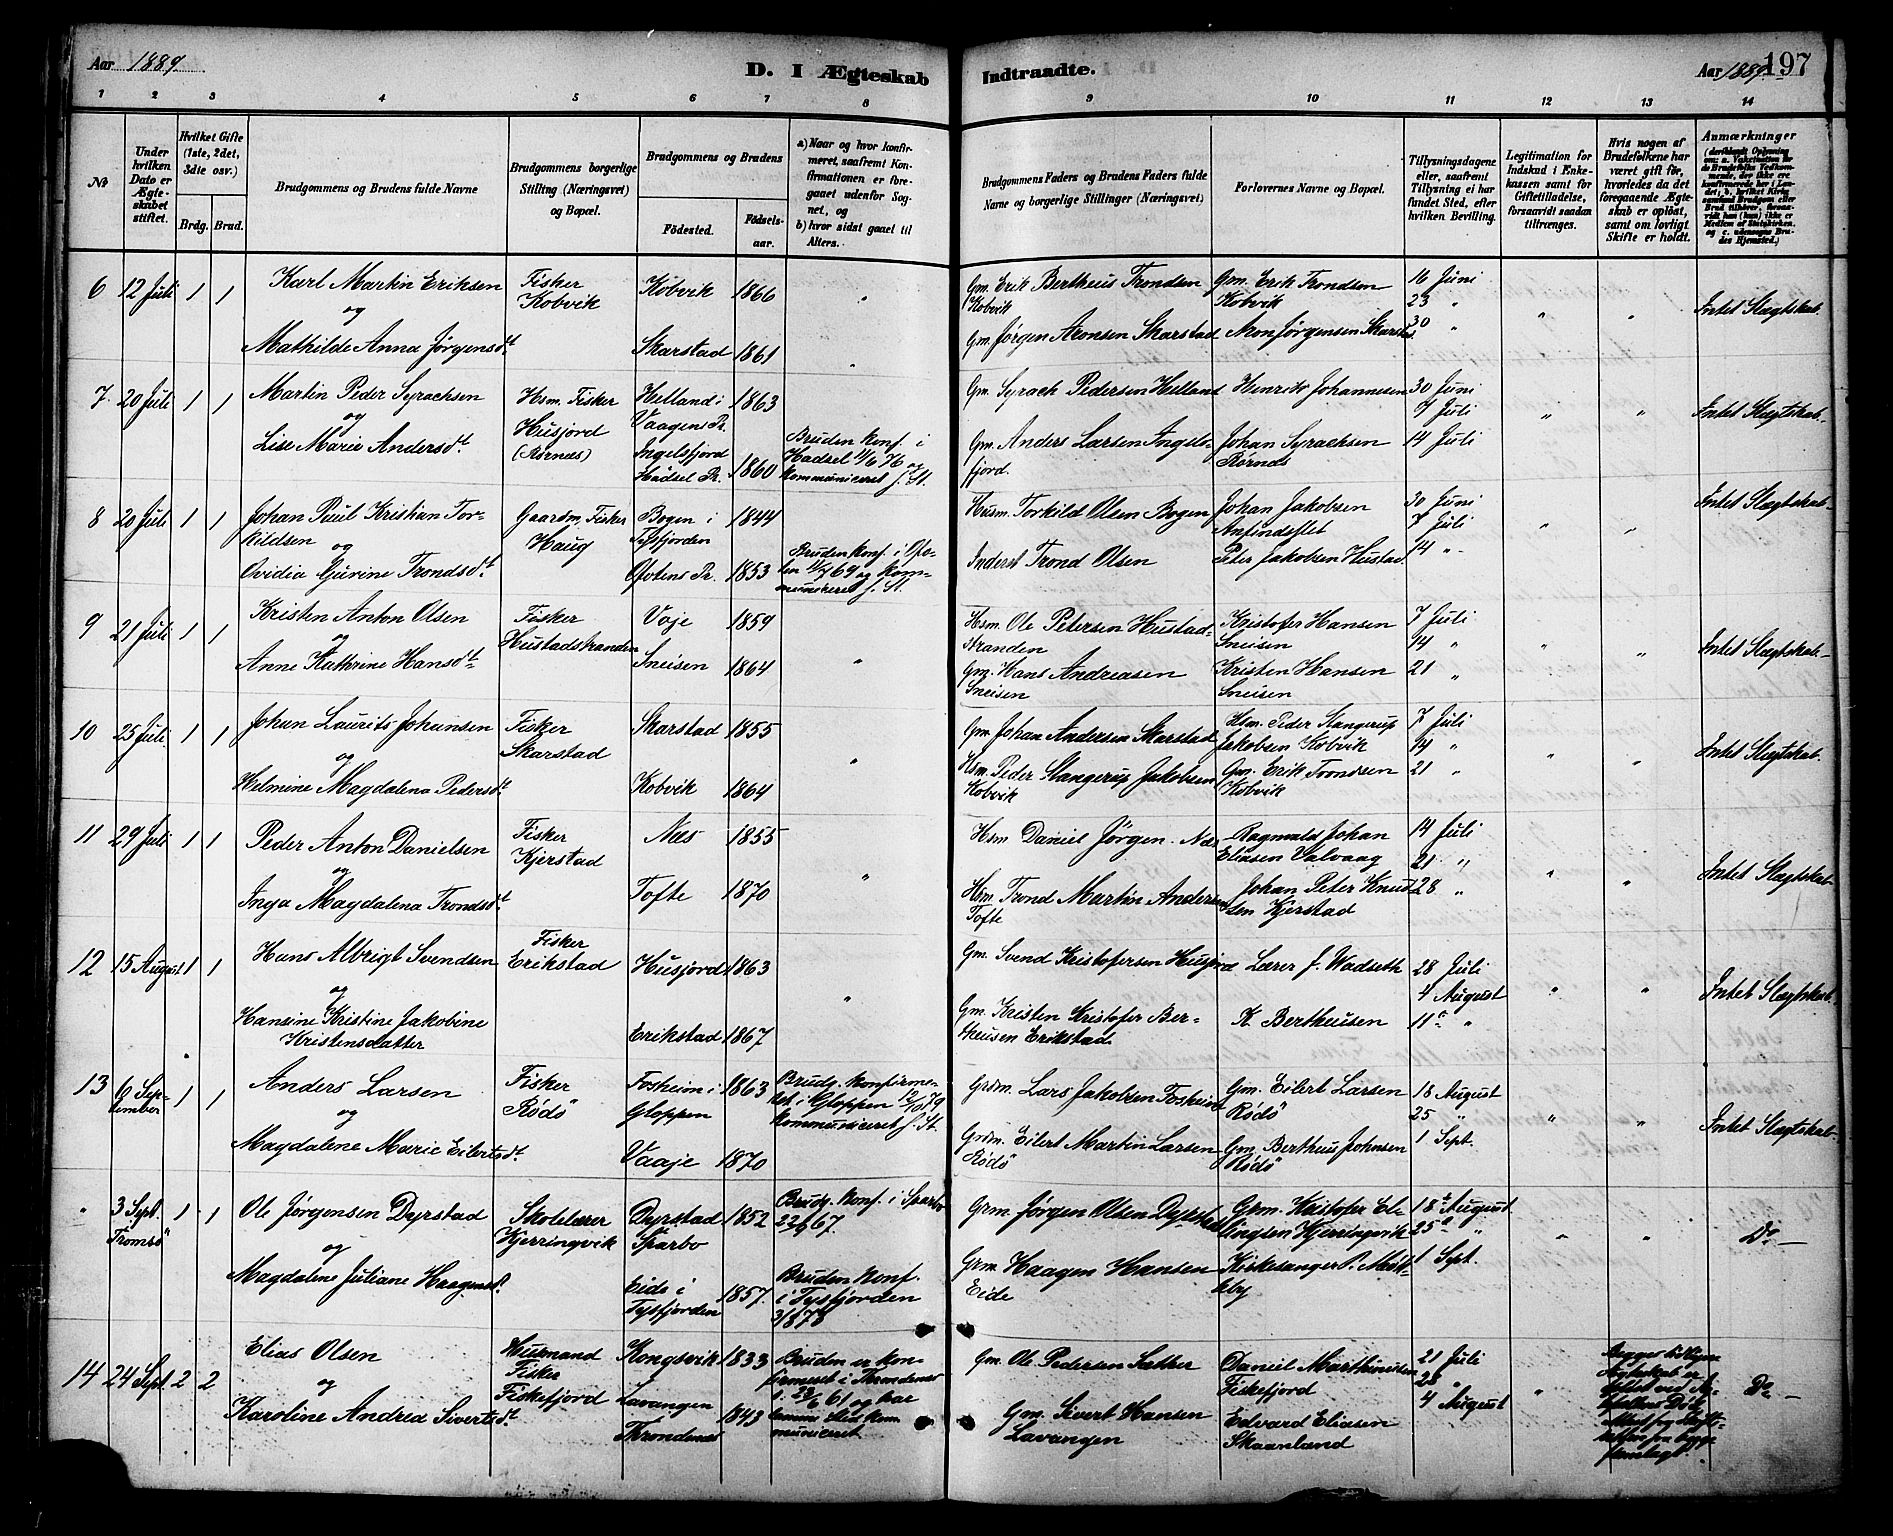 Aar 1889
D. I Ægteskab
Indtraadte.
Aar 1889
197
1 2 3 4 5 6 7 8 9 10 11 12 13 14
№
Under hvilken Dato er Ægteskabet stiftet.
Hvilket Gifte (1ste, 2det, 3die osv.)
Brdg. Brud.
Brudgommens og Brudens fulde Navne
Brudgommens borgerlige Stilling (Næringsvei) og Bopæl.
Brudgommens og Brudens
Fødested.
Fødselsaar.
a) Naar og hvor konfirmeret, saafremt Konfirmationen er foregaaet udenfor Sognet, og
b) hvor sidst gaaet til Alters.
Brudgommens Faders og Brudens Faders fulde Navne og borgerlige Stillinger (Næringsvei)
Forlovernes Navne og Bopæl.
Tillysningsdagene eller, saafremt Tillysning ei har fundet Sted, efter hvilken Bevilling.
Legitimation for Indskud i Enkekassen samt for Giftetilladelse, forsaavidt saadan tiltrænges.
Hvis nogen af Brudefolkene har været gift før, hvorledes da det foregaaende Ægteskab er opløst, samt om lovligt Skifte er holdt.
Anmærkninger
6 12 Juli 1 1 Karl Martin Eriksen
og
Mathilde Anna Jørgensdt.
Fisker
Kobvik
Kobvik 1866 "
Skarstad 1861 "
Gm. Erik Bertheus Trondsen
Kobvik
Gm. Jørgen Aronsen Skarstad
Gm. Erik Trondsen
Kobvik
Mon Jørgensen Skarstad
16 Juni
23 "
30 "
" "
Intet Slægtskab.
7 20 Juli 1 1 Martin Peder Syrachsen
og
Lise Marie Andersdt.
Hsm. Fisker
Husjord
(Rørnæs)
Helland i
Vaagens Pr. 1863
Ingelsfjord
Hadsel Pr. 1860
Bruden konf. i
Hadsel 11/6 76 og
kommuniceret f. St.
Gm. Syrach Pedersen Helland
Gm. Anders Larsen Ingelsfjord.
Henrik Johannesen
Johan Syrachsen
Rørnæs
30 Juni
7 Juli
14 Juli
" "
Intet Slægtskab.
8 20 Juli 1 1 Johan Paul Kristian Torkildsen
og
Ovidia Gurine Trondsdt.
Gaardm. Fisker
Haug
Bogen i
Tysfjorden 1844
Ofotens Pr. 1853
Bruden konf. i Ofoten
69 og kommuniceret f. St.
Husm. Torkild Olsen Bogen
Inderst Trond Olsen
Johan Jakobsen
Peter Jakobsen Hustad
30 Juni
7 Juli
14 "
" "
Intet Slægtskab
9 21 Juli 1 1 Kristen Anton Olsen
og
Anne Kathrine Hansdt.
Fisker
Hustadstranden
Vaje 1859
Sneisen 1864 "
Hsm. Ole Petersen Hustadstranden
Gm. Hans Andreasen
Sneisen
Kristofer Hansen
Sneisen
Kristen Hansen
Sneisen
7 Juli
14 "
21 "
" "
Intet Slægtskab.
10 25 Juli 1 1 Johan Laurits Johansen
og
Helmine Magdalena Pedersdt.
Fisker
Skarstad
Skarstad 1855
Kobvik 1864 "
Gm. Johan Andersen Skarstad
Hsm. Peder Slangerup Jakobsen
Kobvik
Hsm. Peder Slangerup
Jakobsen Kobvik
Gm. Erik Trondsen
Kobvik
7 Juli
14 "
21 "
" "
Intet Slægtskab.
11 29 Juli 1 1 Peder Anton Danielsen
og
Inga Magdalena Trondsdt.
Fisker
Kjerstad
Næs 1855
Tofte 1870 "
Hsm. Daniel Jørgen.
Hsm. Trond Martin Andersen
Tofte
Ragnvald Johan
Eliasen Valvaag
Johan Peter Knudsen Kjerstad
14 Juli
21 "
28 "
" "
Intet Slægtskab
12 15 August 1 1 Hans Albrigt Svendsen
og
Hansine Kristine Jakobine
Kristensdatter
Fisker
Erikstad
Husjord 1863
Erikstad 1867 "
Gm. Svend Kristofersen Husjord
Gm. Kristen Kristofer Bertheusen Erikstad
Lærer J. Wadseth
K. Bertheusen
28 Juli
4 August
11 "
" "
Intet Slægtskab.
13 6 September 1 1 Anders Larsen
og
Magdalene Marie Eilertsdt.
Fisker
Rødø
Foskeim i
Gloppen 1863
Vaaje 1870
Brudg. konfirmeret i Gloppen 12/10 79
kommuniceret f. St.
Grdm. Lars Jakobsen Foskeim
Grdm. Eilert Martin Larsen
Rødø
Gm. Eilert Larsen
Rødø
Gm. Bertheus Johnsen
Rødø
18 August
25 "
1 Sept.
" "
Intet Slægtskab
" 3 Sept.
Tromsø 1 1 Ole Jørgensen Dyrstad
og
Magdalene Juliane Haagensdt.
Skolelærer
Kjerringvik
Dyrstad
Sparbo 1852
Eide i
Tysfjorden 1857.
Brudg. konf. i Sparbo
22/6 67.
Bruden konf.
i Tysfjorden
Grm. Jørgen Olsen Dyrstad
Grm. Haagen Hansen
Eide
Grm. Kristofer Ellingsen Kjerringvik
Kirkesanger
18 August
25 "
1 Sept.
" "
Do —
14 24 Sept. 2 2 Elias Olsen
og
Karoline Andrea Sivertsdt.
Husmand
Fisker
Fiskefjord
Kongsvik 1833
Lavangen
Throndenes 1843
Bruden er konfirmeret i Throndenes
61 og har
kommuniceret
Gm. Ole Pedersen Sætter
Gm. Sivert Hansen
Lavangen
Daniel Marthinsen
Fiskefjord
Edvard Eliasen
Skaanland
21 Juli
28 "
4 August
"
Do —